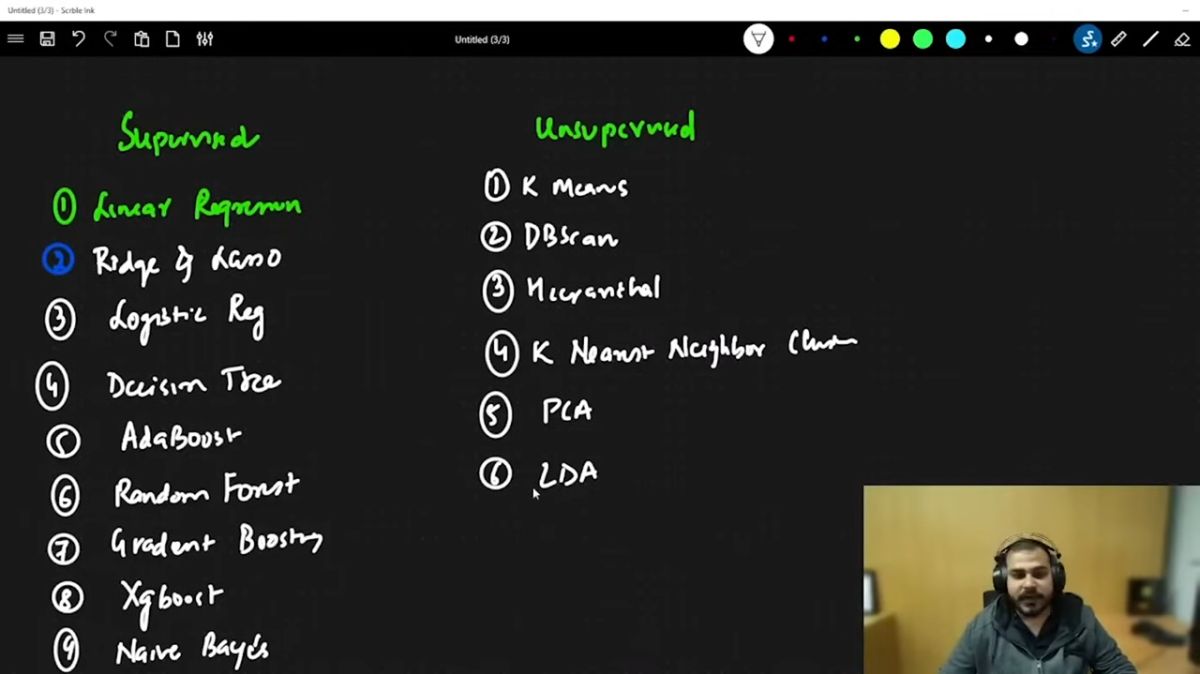 Untitled (3/3) - Scrble Ink
Untitled (3/3)
Supervised
① Linear Regression
② Ridge & Lasso
③ Logistic Reg
④ Decision Tree
⑤ AdaBoost
⑥ Random Forest
⑦ Gradient Boosting
⑧ Xgboost
⑨ Naive Baye's
Unsupervised
① K Means
② DBScan
③ Hierarchal
④ K Nearest Neighbor Clus
⑤ PCA
⑥ LDA